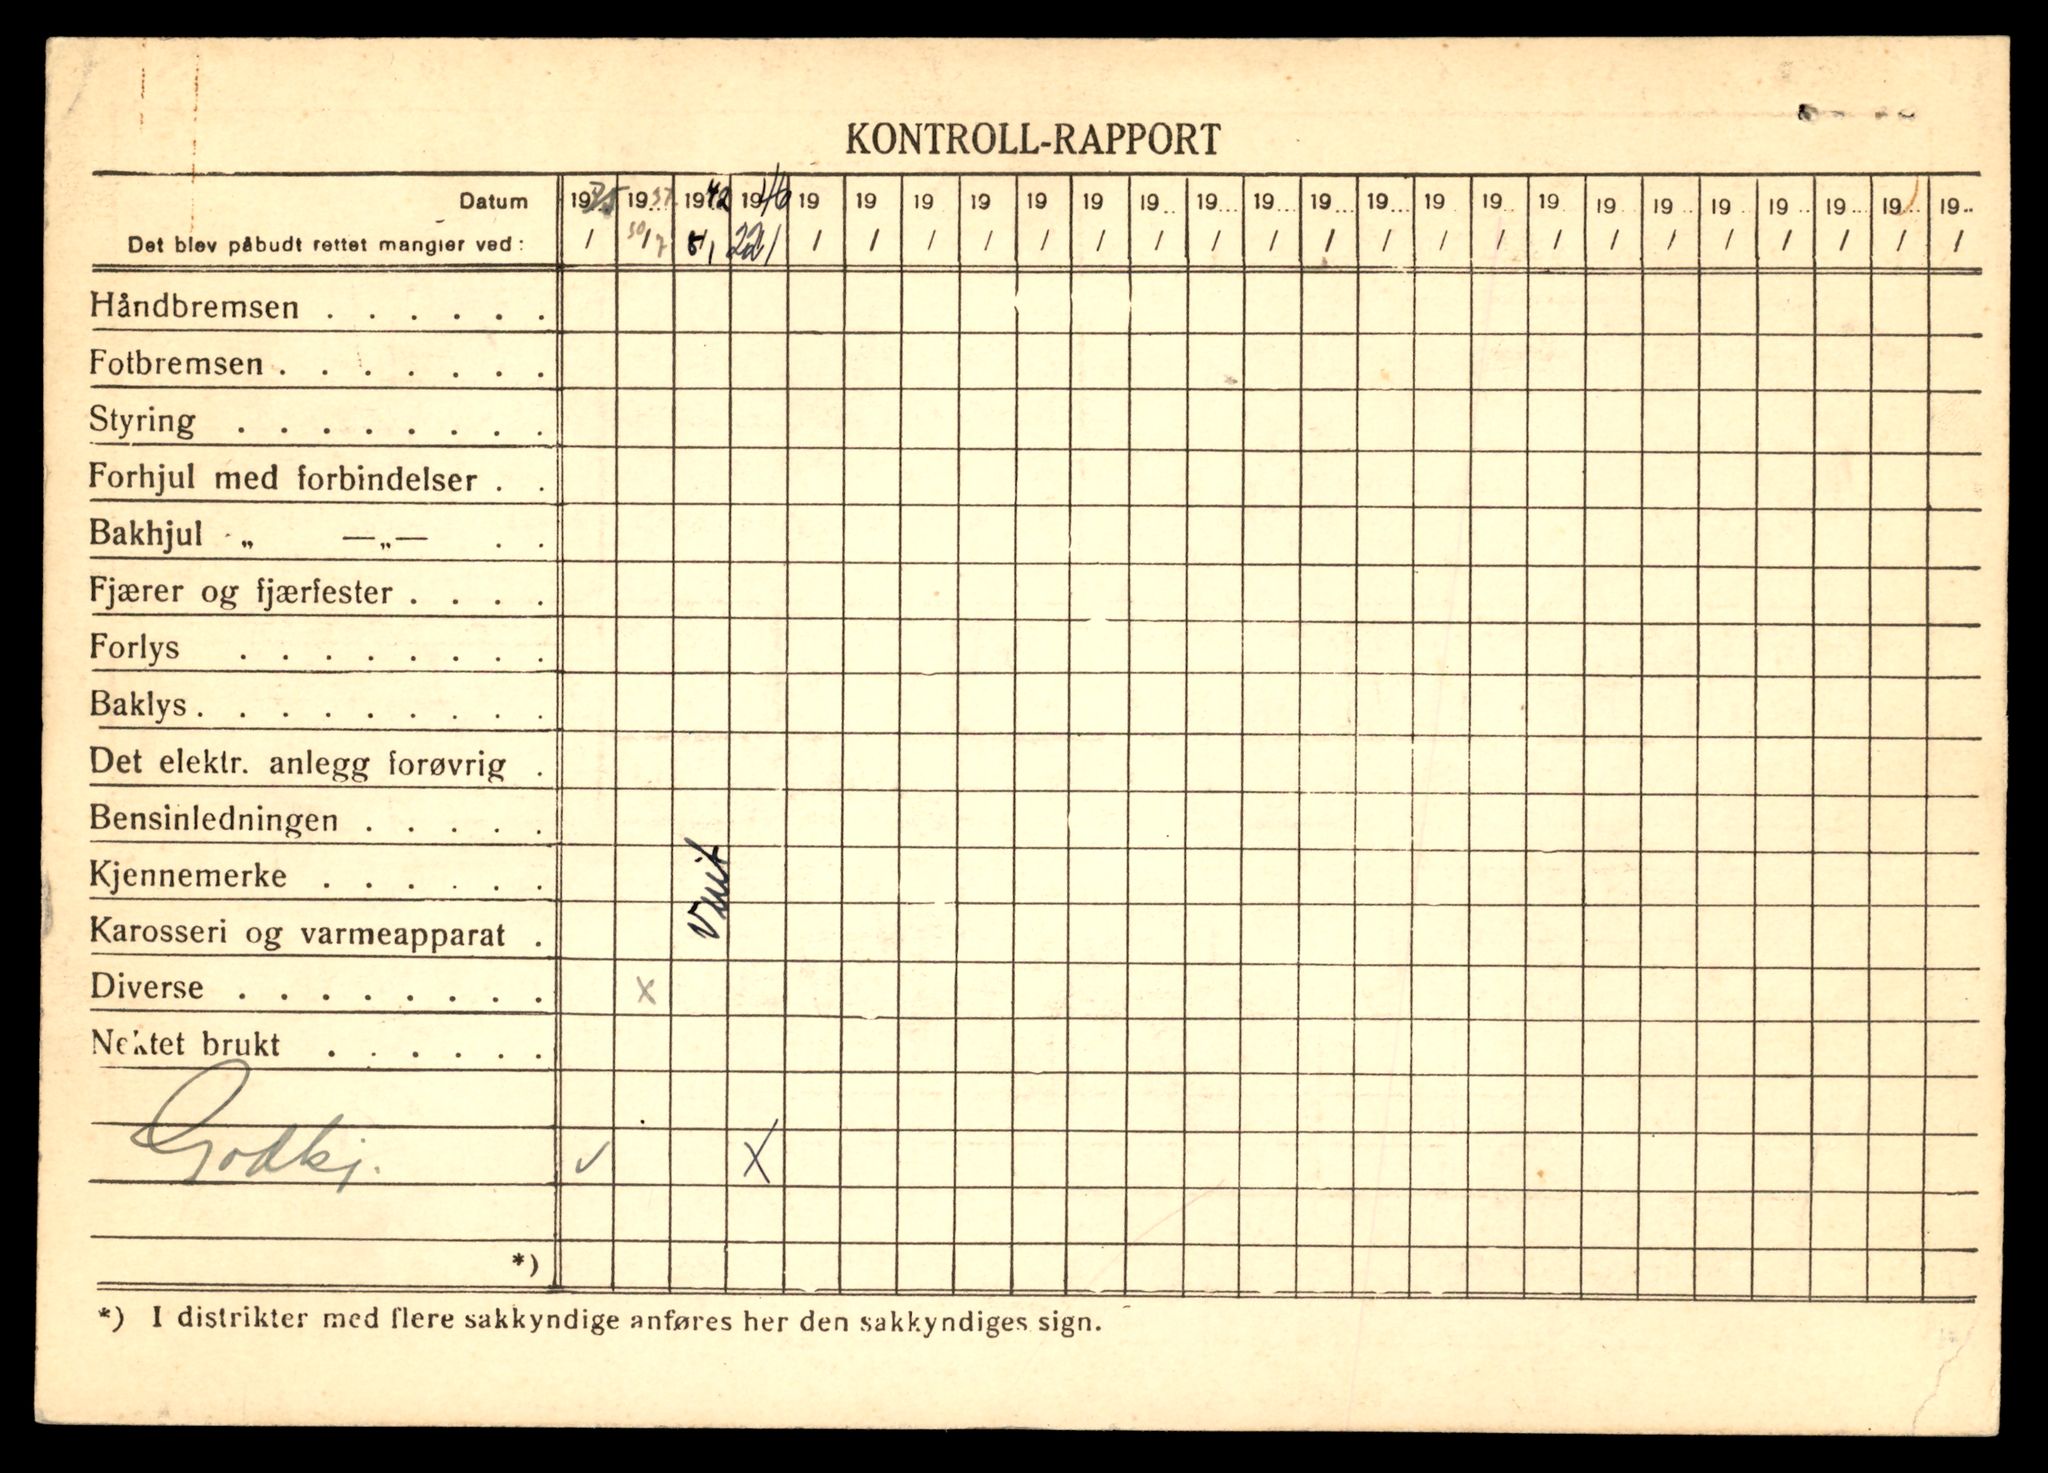 KONTROLL-RAPPORT
Datum 1935 19..37. 1942 1946 19 19 19 19 19 19 19.. 19... 19... 19... 19... 19.. 19... 19.. 19.. 19... 19... 19.. 19... 19... 19..
Det blev påbudt rettet mangler ved: / 30/7 5/1 22/1 / / / / / / / / / / / / / / / / / / / / /
Håndbremsen . . . . . .
Fotbremsen . . . . . . .
Styring . . . . . . . .
Forhjul med forbindelser . .
Bakhjul „ —„— . .
Fjærer og fjærfester . . . .
Forlys . . . . . . . .
Baklys . . . . . . . . .
Det elektr. anlegg forøvrig .
Bensinledningen . . . . .
Kjennemerke . . . . . .
Karosseri og varmeapparat .
Diverse . . . . . . . . x
Nektet brukt . . . . . .
Godkj. ✓ X
*)
*) I distrikter med flere sakkyndige anføres her den sakkyndiges sign.